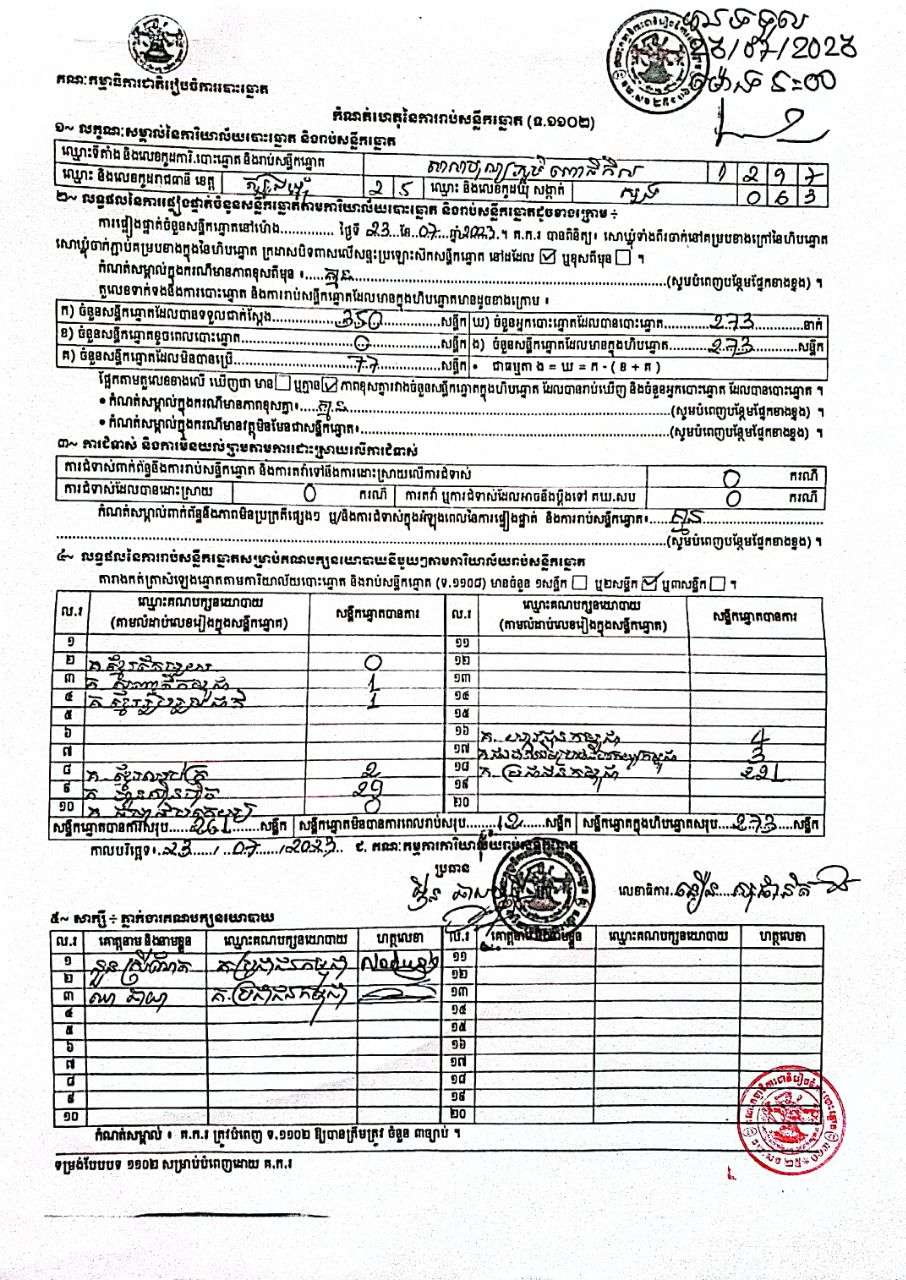 បានទទួល
គណៈកម្មាធិការជាតិរៀបចំការបោះឆ្នោត
កំណត់ហេតុនៃការរាប់សន្លឹកឆ្នោត (ទ.១១០២)
១~ លក្ខណៈសម្គាល់នៃការិយាល័យបោះឆ្នោត និងរាប់សន្លឹកឆ្នោត
ឈ្មោះទីតាំង និងលេខកូដការិ.បោះឆ្នោត និងរាប់សន្លឹកឆ្នោត 1 2 9 7
ឈ្មោះ និងលេខកូដរាជធានី ខេត្ត ត្បូងឃ្មុំ 2 5 ឈ្មោះ និងលេខកូដឃុំ សង្កាត់ សួង 0 6 3
២~ លទ្ធផលនៃការផ្ទៀងផ្ទាត់ចំនួនសន្លឹកឆ្នោតតាមការិយាល័យបោះឆ្នោត និងរាប់សន្លឹកឆ្នោតដូចខាងក្រោម ÷
ការផ្ទៀងផ្ទាត់ចំនួនសន្លឹកឆ្នោតនៅម៉ោង.............. ថ្ងៃទី 23 ខែ 07 ឆ្នាំ 2023. គ.ក.រ បានពិនិត្យ៖ សោឃ្លុំទាំងពីរចាក់នៅគម្របខាងក្រៅនៃហិបឆ្នោត
សោឃ្លុំចាក់ភ្ជាប់គម្របខាងក្នុងនៃហិបឆ្នោត ក្រដាសបិទពាសលើសន្ទះប្រឡោះសឹកសន្លឹកឆ្នោត នៅដដែល ☑ ឬខុសពីមុន ☐ ។
កំណត់សម្គាល់ក្នុងករណីមានភាពខុសពីមុន ៖ គ្មាន (សូមបំពេញបន្ថែមផ្នែកខាងខ្នង) ។
តួលេខទាក់ទងនឹងការបោះឆ្នោត និងការរាប់សន្លឹកឆ្នោតដែលមានក្នុងហិបឆ្នោតមានដូចខាងក្រោម ៖
ក) ចំនួនសន្លឹកឆ្នោតដែលបានទទួលជាក់ស្តែង 350 សន្លឹក ឃ) ចំនួនអ្នកបោះឆ្នោតដែលបានបោះឆ្នោត 273 នាក់
ខ) ចំនួនសន្លឹកឆ្នោតខូចពេលបោះឆ្នោត 0 សន្លឹក ង) ចំនួនសន្លឹកឆ្នោតដែលមានក្នុងហិបឆ្នោត 273 សន្លឹក
គ) ចំនួនសន្លឹកឆ្នោតដែលមិនបានប្រើ 77 សន្លឹក • ជាធម្មតា ង = ឃ = ក - ( ខ + គ )
ផ្អែកតាមតួលេខខាងលើ ឃើញថា មាន ☐ ឬគ្មាន ☑ ភាពខុសគ្នារវាងចំនួនសន្លឹកឆ្នោតក្នុងហិបឆ្នោត ដែលបានរាប់ឃើញ និងចំនួនអ្នកបោះឆ្នោត ដែលបានបោះឆ្នោត ។
• កំណត់សម្គាល់ក្នុងករណីមានភាពខុសគ្នា៖ គ្មាន (សូមបំពេញបន្ថែមផ្នែកខាងខ្នង) ។
• កំណត់សម្គាល់ក្នុងករណីមានវត្ថុមិនមែនជាសន្លឹកឆ្នោត៖ (សូមបំពេញបន្ថែមផ្នែកខាងខ្នង) ។
៣~ ការជំទាស់ និងការមិនយល់ព្រមតាមការដោះស្រាយលើការជំទាស់
ការជំទាស់ពាក់ព័ន្ធនឹងការរាប់សន្លឹកឆ្នោត និងការតវ៉ាទៅនឹងការដោះស្រាយលើការជំទាស់ 0 ករណី
ការជំទាស់ដែលបានដោះស្រាយ 0 ករណី ការតវ៉ា ឬការជំទាស់ដែលអាចនឹងប្តឹងទៅ គឃ.សប 0 ករណី
កំណត់សម្គាល់ពាក់ព័ន្ធនឹងភាពមិនប្រក្រតីផ្សេងៗ ឬ/និងការជំទាស់ក្នុងអំឡុងពេលនៃការផ្ទៀងផ្ទាត់ និងការរាប់សន្លឹកឆ្នោត៖ គ្មាន
(សូមបំពេញបន្ថែមផ្នែកខាងខ្នង) ។
៤~ លទ្ធផលនៃការរាប់សន្លឹកឆ្នោតសម្រាប់គណបក្សនយោបាយនីមួយៗតាមការិយាល័យរាប់សន្លឹកឆ្នោត
តារាងកត់ត្រាសំឡេងឆ្នោតតាមការិយាល័យបោះឆ្នោត និងរាប់សន្លឹកឆ្នោត (ទ.១១០៨) មានចំនួន ១សន្លឹក ☐ ឬ២សន្លឹក ☑ ឬ៣សន្លឹក ☐ ។
ល.រ ឈ្មោះគណបក្សនយោបាយ (តាមលំដាប់លេខរៀងក្នុងសន្លឹកឆ្នោត) សន្លឹកឆ្នោតបានការ ល.រ ឈ្មោះគណបក្សនយោបាយ (តាមលំដាប់លេខរៀងក្នុងសន្លឹកឆ្នោត) សន្លឹកឆ្នោតបានការ
១ ១១
២ 0 ១២
៣ 1 ១៣
៤ 1 ១៤
៥ ១៥
៦ ១៦ 4
៧ ១៧ 3
៨ 2 ១៨ គ. ប្រជាជនកម្ពុជា 221
៩ គ. ហ៊្វុនស៊ិនប៉ិច 29 ១៩
១០ 0 ២០
សន្លឹកឆ្នោតបានការសរុប 261 សន្លឹក សន្លឹកឆ្នោតមិនបានការពេលរាប់សរុប 12 សន្លឹក សន្លឹកឆ្នោតក្នុងហិបឆ្នោតសរុប 273 សន្លឹក
កាលបរិច្ឆេទ៖ 23 / 07 / 2023 ជ. គណៈកម្មការការិយាល័យរាប់សន្លឹកឆ្នោត
ប្រធាន
លេខាធិការ
៥~ សាក្សី ÷ ភ្នាក់ងារគណបក្សនយោបាយ
ល.រ គោត្តនាម និងនាមខ្លួន ឈ្មោះគណបក្សនយោបាយ ហត្ថលេខា ល.រ គោត្តនាម និងនាមខ្លួន ឈ្មោះគណបក្សនយោបាយ ហត្ថលេខា
១ គ.ប្រជាជនកម្ពុជា ១១
២ ១២
៣ គ.ប្រជាជនកម្ពុជា ១៣
៤ ១៤
៥ ១៥
៦ ១៦
៧ ១៧
៨ ១៨
៩ ១៩
១០ ២០
កំណត់សម្គាល់ ៖ គ.ក.រ ត្រូវបំពេញ ទ.១១០២ ឱ្យបានត្រឹមត្រូវ ចំនួន ៣ច្បាប់ ។
ទម្រង់បែបបទ ១១០២ សម្រាប់បំពេញដោយ គ.ក.រ